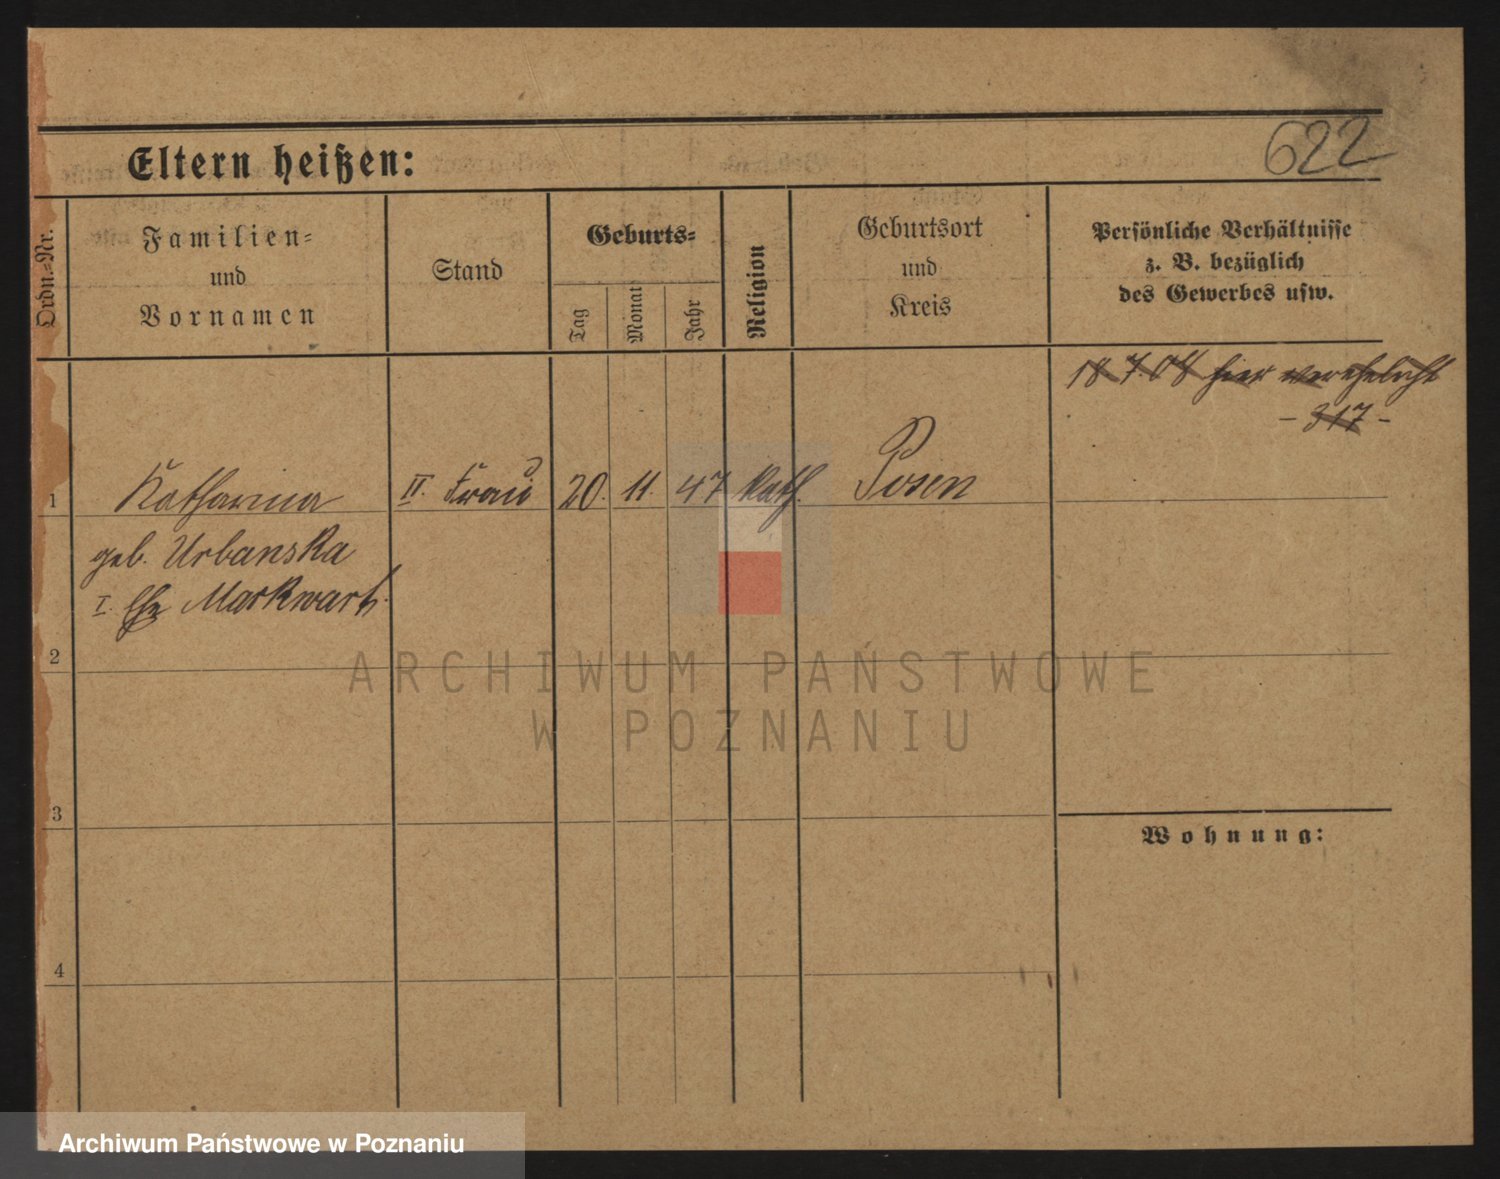 622
Eltern heißen:
Ordn.=Nr.
Familien=
und
Vornamen
Stand
Geburts=
Tag
Monat
Jahr
Religion
Geburtsort
und
Kreis
Persönliche Verhältnisse
z. B. bezüglich
des Gewerbes usw.
18.7.08 hier verehelicht
- 317 -
1 Katharina II. Frau 20. 11. 47 kath. Posen
geb. Urbanska
I. Ehe Markwart
2
3
Wohnung:
4
ARCHIWUM PAŃSTWOWE
W POZNANIU
Archiwum Państwowe w Poznaniu